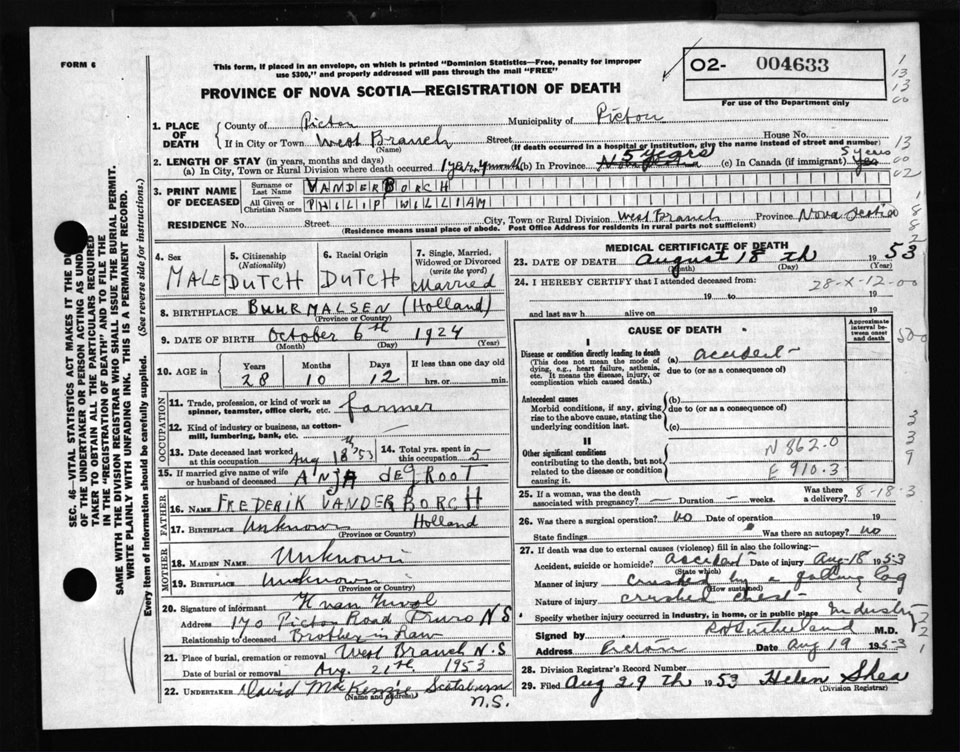 FORM 6
This form, if placed in an envelope, on which is printed "Dominion Statistics—Free, penalty for improper
use $300," and properly addressed will pass through the mail "FREE"
O2- 004633
For use of the Department only
PROVINCE OF NOVA SCOTIA—REGISTRATION OF DEATH
1. PLACE OF DEATH
County of Pictou Municipality of Pictou
If in City or Town West Branch Street House No.
(Name) (If death occurred in a hospital or institution, give the name instead of street and number)
2. LENGTH OF STAY (in years, months and days)
(a) In City, Town or Rural Division where death occurred (b) In Province 5 years (c) In Canada (if immigrant) 5 years
3. PRINT NAME OF DECEASED
Surname or Last Name VANDERBORCH
All Given or Christian Names PHILIP WILLIAM
RESIDENCE No. Street City, Town or Rural Division West Branch Province Nova Scotia
(Residence means usual place of abode. Post Office Address for residents in rural parts not sufficient)
4. Sex MALE
5. Citizenship (Nationality) DUTCH
6. Racial Origin DUTCH
7. Single, Married, Widowed or Divorced (write the word) Married
8. BIRTHPLACE BUURMALSEN (Holland)
(Province or Country)
9. DATE OF BIRTH October 6th 1924
(Month) (Day) (Year)
10. AGE in Years Months Days If less than one day old
28 10 12 hrs. or min.
OCCUPATION
11. Trade, profession, or kind of work as spinner, teamster, office clerk, etc. farmer
12. Kind of industry or business, as cotton-mill, lumbering, bank, etc. —
13. Date deceased last worked at this occupation Aug 18th '53
14. Total yrs. spent in this occupation 5
15. If married give name of wife or husband of deceased ANJA deGROOT
FATHER
16. NAME FREDERIK VANDERBORCH
17. BIRTHPLACE Unknown Holland
(Province or Country)
MOTHER
18. MAIDEN NAME Unknown
19. BIRTHPLACE Unknown
(Province or Country)
20. Signature of informant
Address 170 Pictou Road Truro N S
Relationship to deceased Brother in Law
21. Place of burial, cremation or removal West Branch N.S
Date of burial or removal Aug. 21th 1953
22. UNDERTAKER David MacKenzie Scotsburn
(Name and address) N.S.
MEDICAL CERTIFICATE OF DEATH
23. DATE OF DEATH August 18 th 1953
(Month) (Day) (Year)
24. I HEREBY CERTIFY that I attended deceased from: 28-X-12-00
19 to 19
and last saw h alive on 19
CAUSE OF DEATH
Approximate interval between onset and death
I
Disease or condition directly leading to death (a) accident
(This does not mean the mode of dying, e.g., heart failure, asthenia, etc. It means the disease, injury, or complication which caused death.)
due to (or as a consequence of)
Antecedent causes
Morbid conditions, if any, giving rise to the above cause, stating the underlying condition last.
(b)
due to (or as a consequence of)
(c)
II
Other significant conditions
contributing to the death, but not related to the disease or condition causing it.
N 862.0
E 910.3
25. If a woman, was the death associated with pregnancy? — Duration — weeks Was there a delivery? 8-18-3
26. Was there a surgical operation? no Date of operation 19
State findings Was there an autopsy? no
27. If death was due to external causes (violence) fill in also the following:—
Accident, suicide or homicide? accident Date of injury Aug 18 1953
(State which)
Manner of injury crushed by a falling log
(How sustained)
Nature of injury crushed chest
Specify whether injury occurred in industry, in home, or in public place Industry
Signed by R H Sutherland M.D.
Address Pictou Date Aug 19 1953
28. Division Registrar's Record Number
29. Filed Aug 29 th 1953 Helen Shea
(Division Registrar)
SEC. 46—VITAL STATISTICS ACT MAKES IT THE
OF THE UNDERTAKER OR PERSON ACTING AS UNDER
TAKER TO OBTAIN ALL THE PARTICULARS REQUIRED
IN THE "REGISTRATION OF DEATH" AND TO FILE THE
SAME WITH THE DIVISION REGISTRAR WHO SHALL ISSUE THE BURIAL PERMIT.
WRITE PLAINLY WITH UNFADING INK. THIS IS A PERMANENT RECORD.
Every item of information should be carefully supplied. (See reverse side for instructions.)